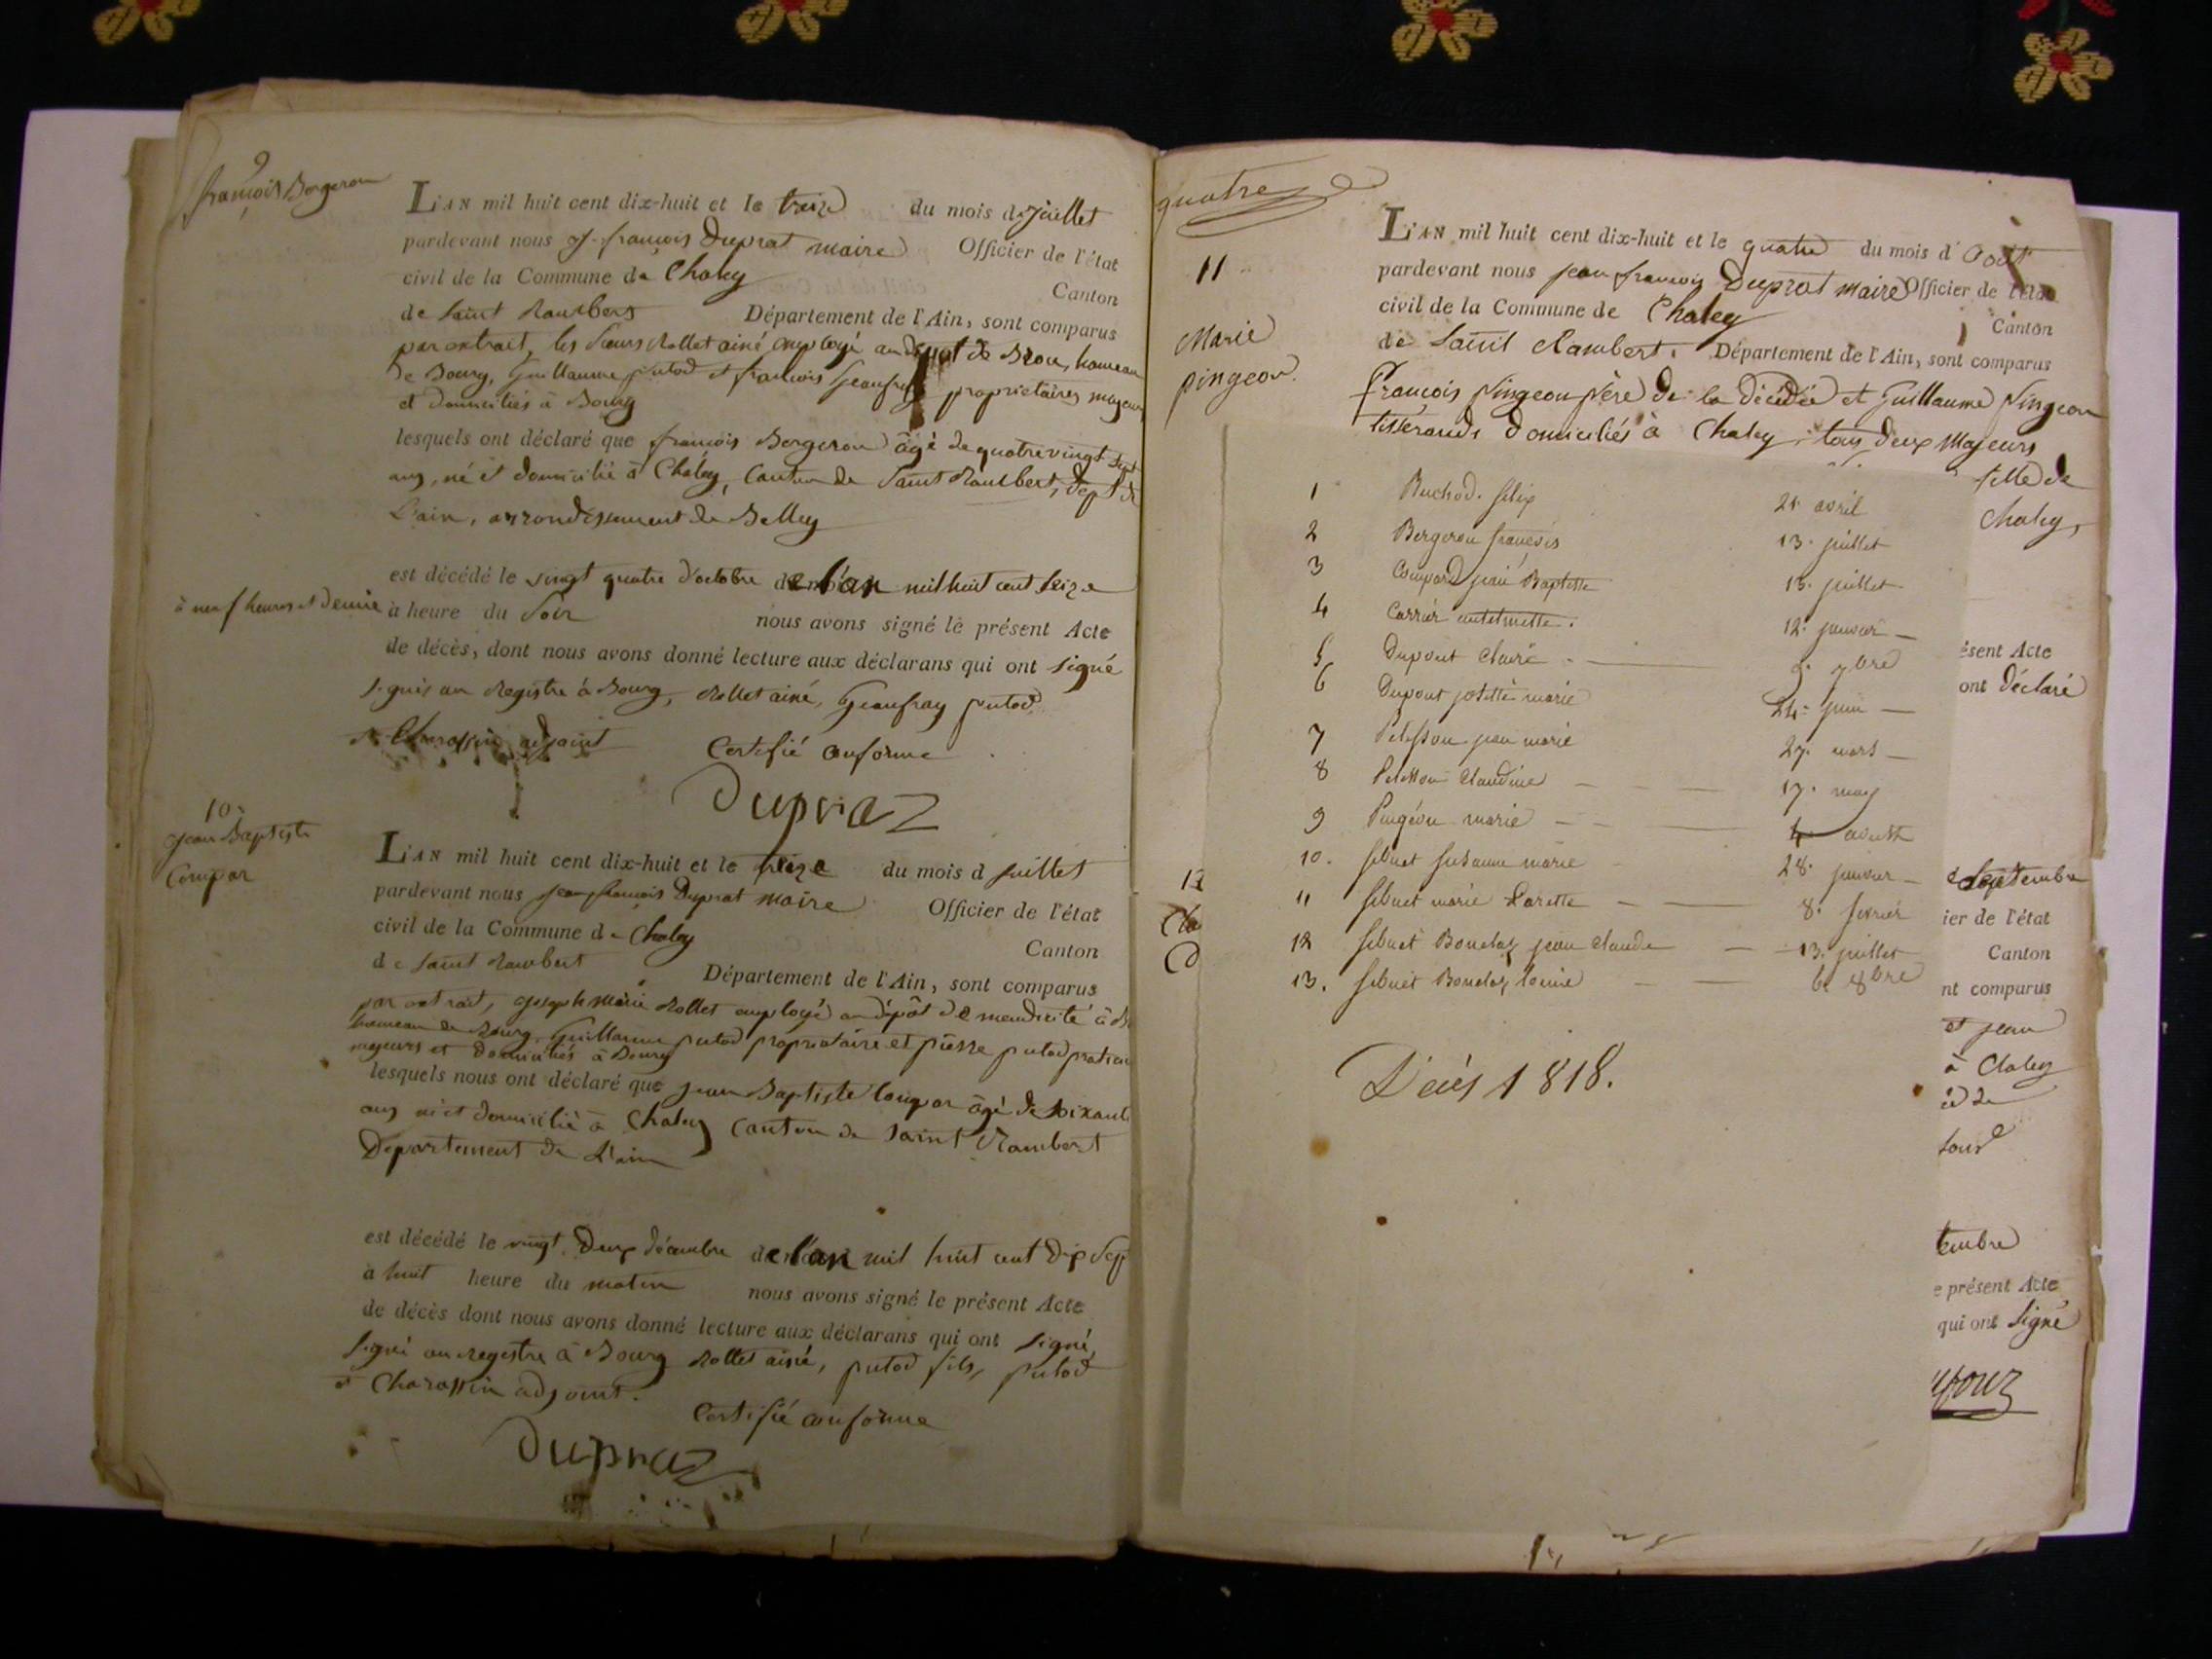 9
françois Bergeron
L'AN mil huit cent dix-huit et le treize du mois de juillet
pardevant nous J. françois Duprat maire Officier de l'état
civil de la Commune de Chaley
Canton
de Saint Rambert Département de l'Ain, sont comparus
par extrait, les Sieurs Rollet ainé employé au dépot de Brou, hameau
de Bourg, Guillaume putod et françois Geaufray propriétaires majeurs
et domiciliés à Bourg
lesquels ont déclaré que françois Bergeron âgé de quatrevingt
ans, né et domicilié à Chaley, Canton de Saint Rambert, dept de
L'ain, arrondissement de Belley
est décédé le vingt quatre d'octobre de l'an mil huit cent seize
à neuf heures et demie à heure du Soir nous avons signé le présent Acte
de décès, dont nous avons donné lecture aux déclarans qui ont signé
signés au Registre à Bourg, Rollet ainé, Geaufray putod
et Charassin adjoint Certifié conforme
Dupraz
10
Jean Baptiste
Compar
L'AN mil huit cent dix-huit et le treize du mois d juillet
pardevant nous Jean françois Duprat maire Officier de l'état
civil de la Commune de Chaley
Canton
de Saint Rambert Département de l'Ain, sont comparus
par extrait, joseph marie Rollet employé au dépôt de mendicité à
hameau de Bourg, Guillaume putod propriétaire et pierre putod
majeurs et domiciliés à Bourg
lesquels nous ont déclaré que jean Baptiste Compar âgé de soixante
ans né et domicilié à Chaley Canton de Saint Rambert
Département de L'ain
est décédé le vingt deux décembre de l'an mil huit cent dix sept
à huit heure du matin nous avons signé le présent Acte
de décès dont nous avons donné lecture aux déclarans qui ont signé
signé au Registre à Bourg Rollet ainé, putod fils, putod
et Charassin adjoint.
Certifié conforme
Dupraz
quatre
11
Marie
pingeon.
L'AN mil huit cent dix-huit et le quatre du mois d'Août
pardevant nous jean françois Duprat maire Officier de l'état
civil de la Commune de Chaley
Canton
de Saint Rambert. Département de l'Ain, sont comparus
François pingeon père de la décédée et Guillaume pingeon
tisserands domiciliés à Chaley, tous deux majeurs
fille de
Chaley,
1 Buchod. felix 21 avril
2 Bergeron françois 13. juillet
3 Compard jean Baptiste 13. juillet
4 Carrier antelmette. 12. janvier
5 Dupont Claire 9bre
6 Dupont josette marie 24. juin
7 Pelisson jean marie 27. mars
8 Pelisson Claudine 17. may
9 Pingeon marie 4 aoust
10. Sibuet Susanne marie 28. janvier
11 Sibuet marie 8. fevrier
12 Sibuet Bonelaz jean Claude 13. juillet
13. Sibuet Bonelaz 6. 8bre
Décés 1818.
ésent Acte
ont déclaré
12
Septembre
ier de l'état
Canton
nt comparus
et jean
à Chaley
tembre
e présent Acte
qui ont Signé